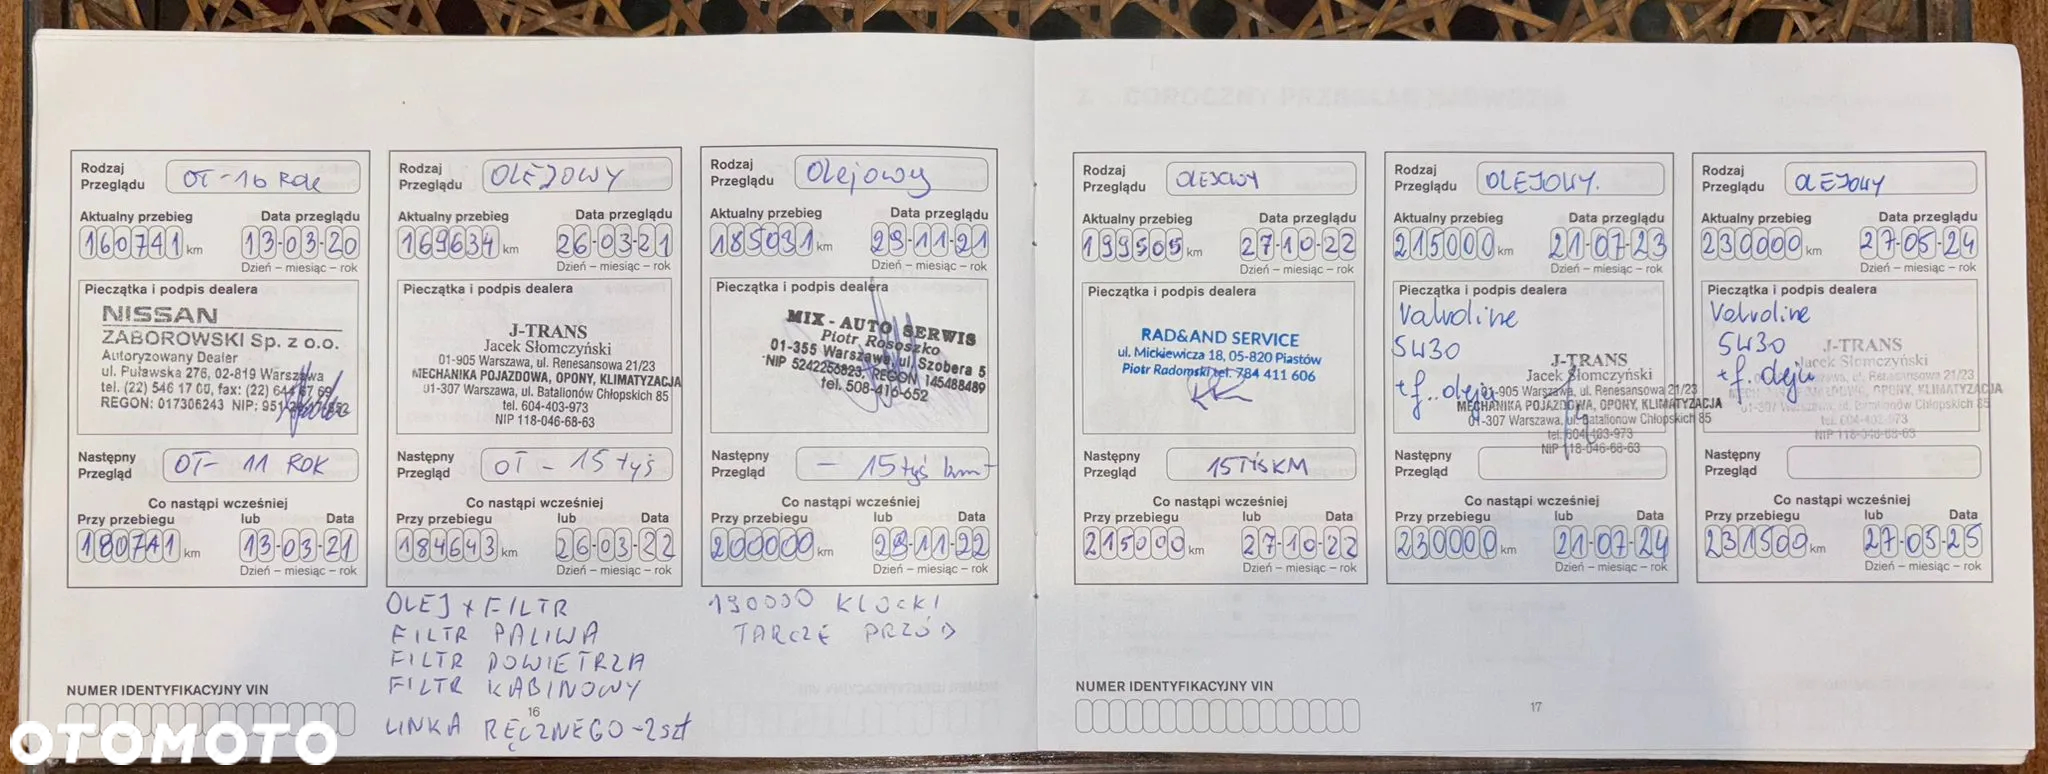 Rodzaj Przeglądu OT-10 ROK
Aktualny przebieg Data przeglądu
160741 km 13-03-20
Dzień – miesiąc – rok
Pieczątka i podpis dealera
NISSAN
ZABOROWSKI Sp. z o.o.
Autoryzowany Dealer
ul. Puławska 276, 02-819 Warszawa
tel. (22) 546 17 00, fax: (22) 644 67 69
REGON: 017306243 NIP: 951
Następny Przegląd OT- 11 ROK
Co nastąpi wcześniej
Przy przebiegu lub Data
180741 km 13-03-21
Dzień – miesiąc – rok
NUMER IDENTYFIKACYJNY VIN
Rodzaj Przeglądu OLEJOWY
Aktualny przebieg Data przeglądu
169634 km 26-03-21
Dzień – miesiąc – rok
Pieczątka i podpis dealera
J-TRANS
Jacek Słomczyński
01-905 Warszawa, ul. Renesansowa 21/23
MECHANIKA POJAZDOWA, OPONY, KLIMATYZACJA
01-307 Warszawa, ul. Batalionów Chłopskich 85
tel. 604-403-973
NIP 118-046-68-63
Następny Przegląd OT - 15 tyś
Co nastąpi wcześniej
Przy przebiegu lub Data
184643 km 26-03-22
Dzień – miesiąc – rok
OLEJ + FILTR
FILTR PALIWA
FILTR POWIETRZA
FILTR KABINOWY
16
LINKA RĘCZNEGO - 2szt
Rodzaj Przeglądu Olejowy
Aktualny przebieg Data przeglądu
185031 km 29-11-21
Dzień – miesiąc – rok
Pieczątka i podpis dealera
MIX - AUTO SERWIS
Piotr Rososzko
01-355 Warszawa, ul. Szobera 5
NIP 5242256823, REGON 145488489
tel. 508-416-652
Następny Przegląd - 15 tyś km -
Co nastąpi wcześniej
Przy przebiegu lub Data
200000 km 29-11-22
Dzień – miesiąc – rok
190000 KLOCKI
TARCZE PRZÓD
Rodzaj Przeglądu OLEJOWY
Aktualny przebieg Data przeglądu
199505 km 27-10-22
Dzień – miesiąc – rok
Pieczątka i podpis dealera
RAD&AND SERVICE
ul. Mickiewicza 18, 05-820 Piastów
Piotr Radomski tel. 784 411 606
Następny Przegląd 15 TYŚ KM
Co nastąpi wcześniej
Przy przebiegu lub Data
215000 km 27-10-22
Dzień – miesiąc – rok
NUMER IDENTYFIKACYJNY VIN
Rodzaj Przeglądu OLEJOWY.
Aktualny przebieg Data przeglądu
215000 km 21-07-23
Dzień – miesiąc – rok
Pieczątka i podpis dealera
Valvoline
5W30
+ f. oleju
J-TRANS
Jacek Słomczyński
01-905 Warszawa, ul. Renesansowa 21/23
MECHANIKA POJAZDOWA, OPONY, KLIMATYZACJA
01-307 Warszawa, ul. Batalionów Chłopskich 85
tel. 604-403-973
NIP 118-046-68-63
Następny Przegląd
Co nastąpi wcześniej
Przy przebiegu lub Data
230000 km 21-07-24
Dzień – miesiąc – rok
17
Rodzaj Przeglądu OLEJOWY
Aktualny przebieg Data przeglądu
230000 km 27-05-24
Dzień – miesiąc – rok
Pieczątka i podpis dealera
Valvoline
5W30
+ f. oleju
J-TRANS
Jacek Słomczyński
01-905 Warszawa, ul. Renesansowa 21/23
MECHANIKA POJAZDOWA, OPONY, KLIMATYZACJA
01-307 Warszawa, ul. Batalionów Chłopskich 85
tel. 604-403-973
NIP 118-046-68-63
Następny Przegląd
Co nastąpi wcześniej
Przy przebiegu lub Data
231500 km 27-05-25
Dzień – miesiąc – rok
OTOMOTO